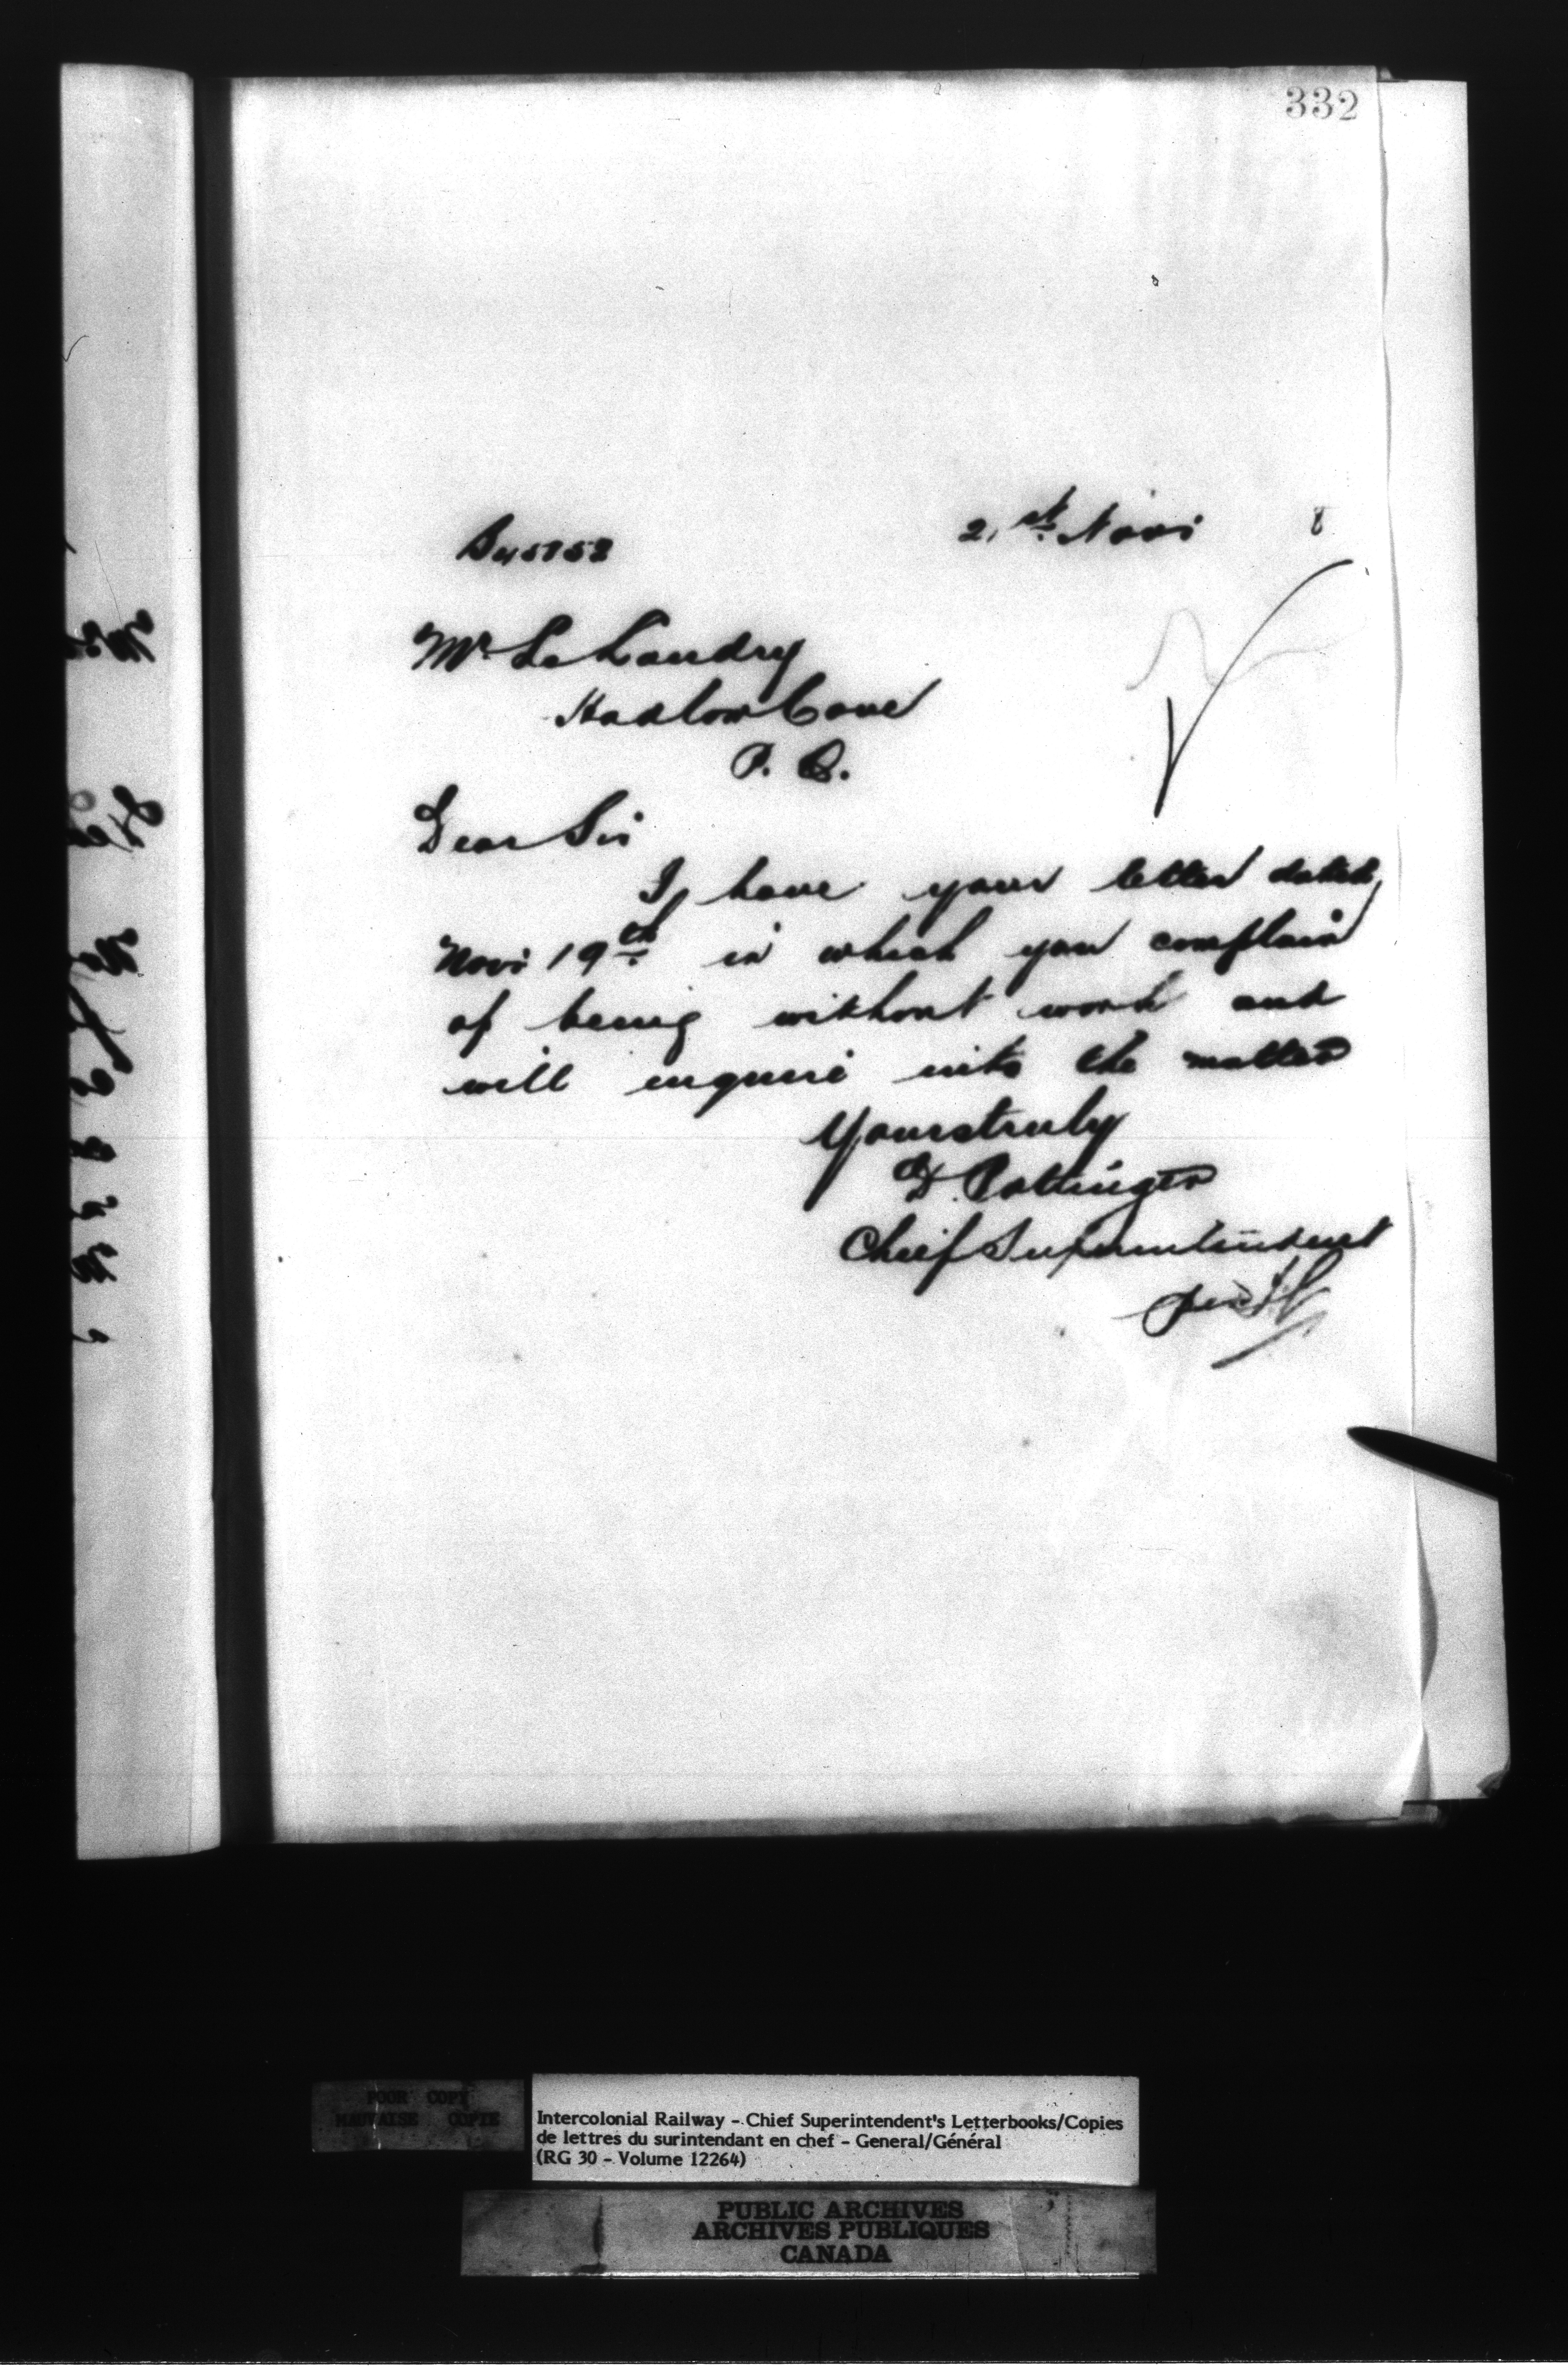 332
21st Nov 8
B45758
Mr. L. Landry
Hadlow Cove
P. Q.
Dear Sir
I have your letter dated
Nov 19th in which you complain
of being without work and
will enquire into the matter
Yours truly
D. Pottinger
Chief Superintendent
per
POOR COPY
MAUVAISE COPIE
Intercolonial Railway - Chief Superintendent's Letterbooks/Copies
de lettres du surintendant en chef - General/Général
(RG 30 - Volume 12264)
PUBLIC ARCHIVES
ARCHIVES PUBLIQUES
CANADA